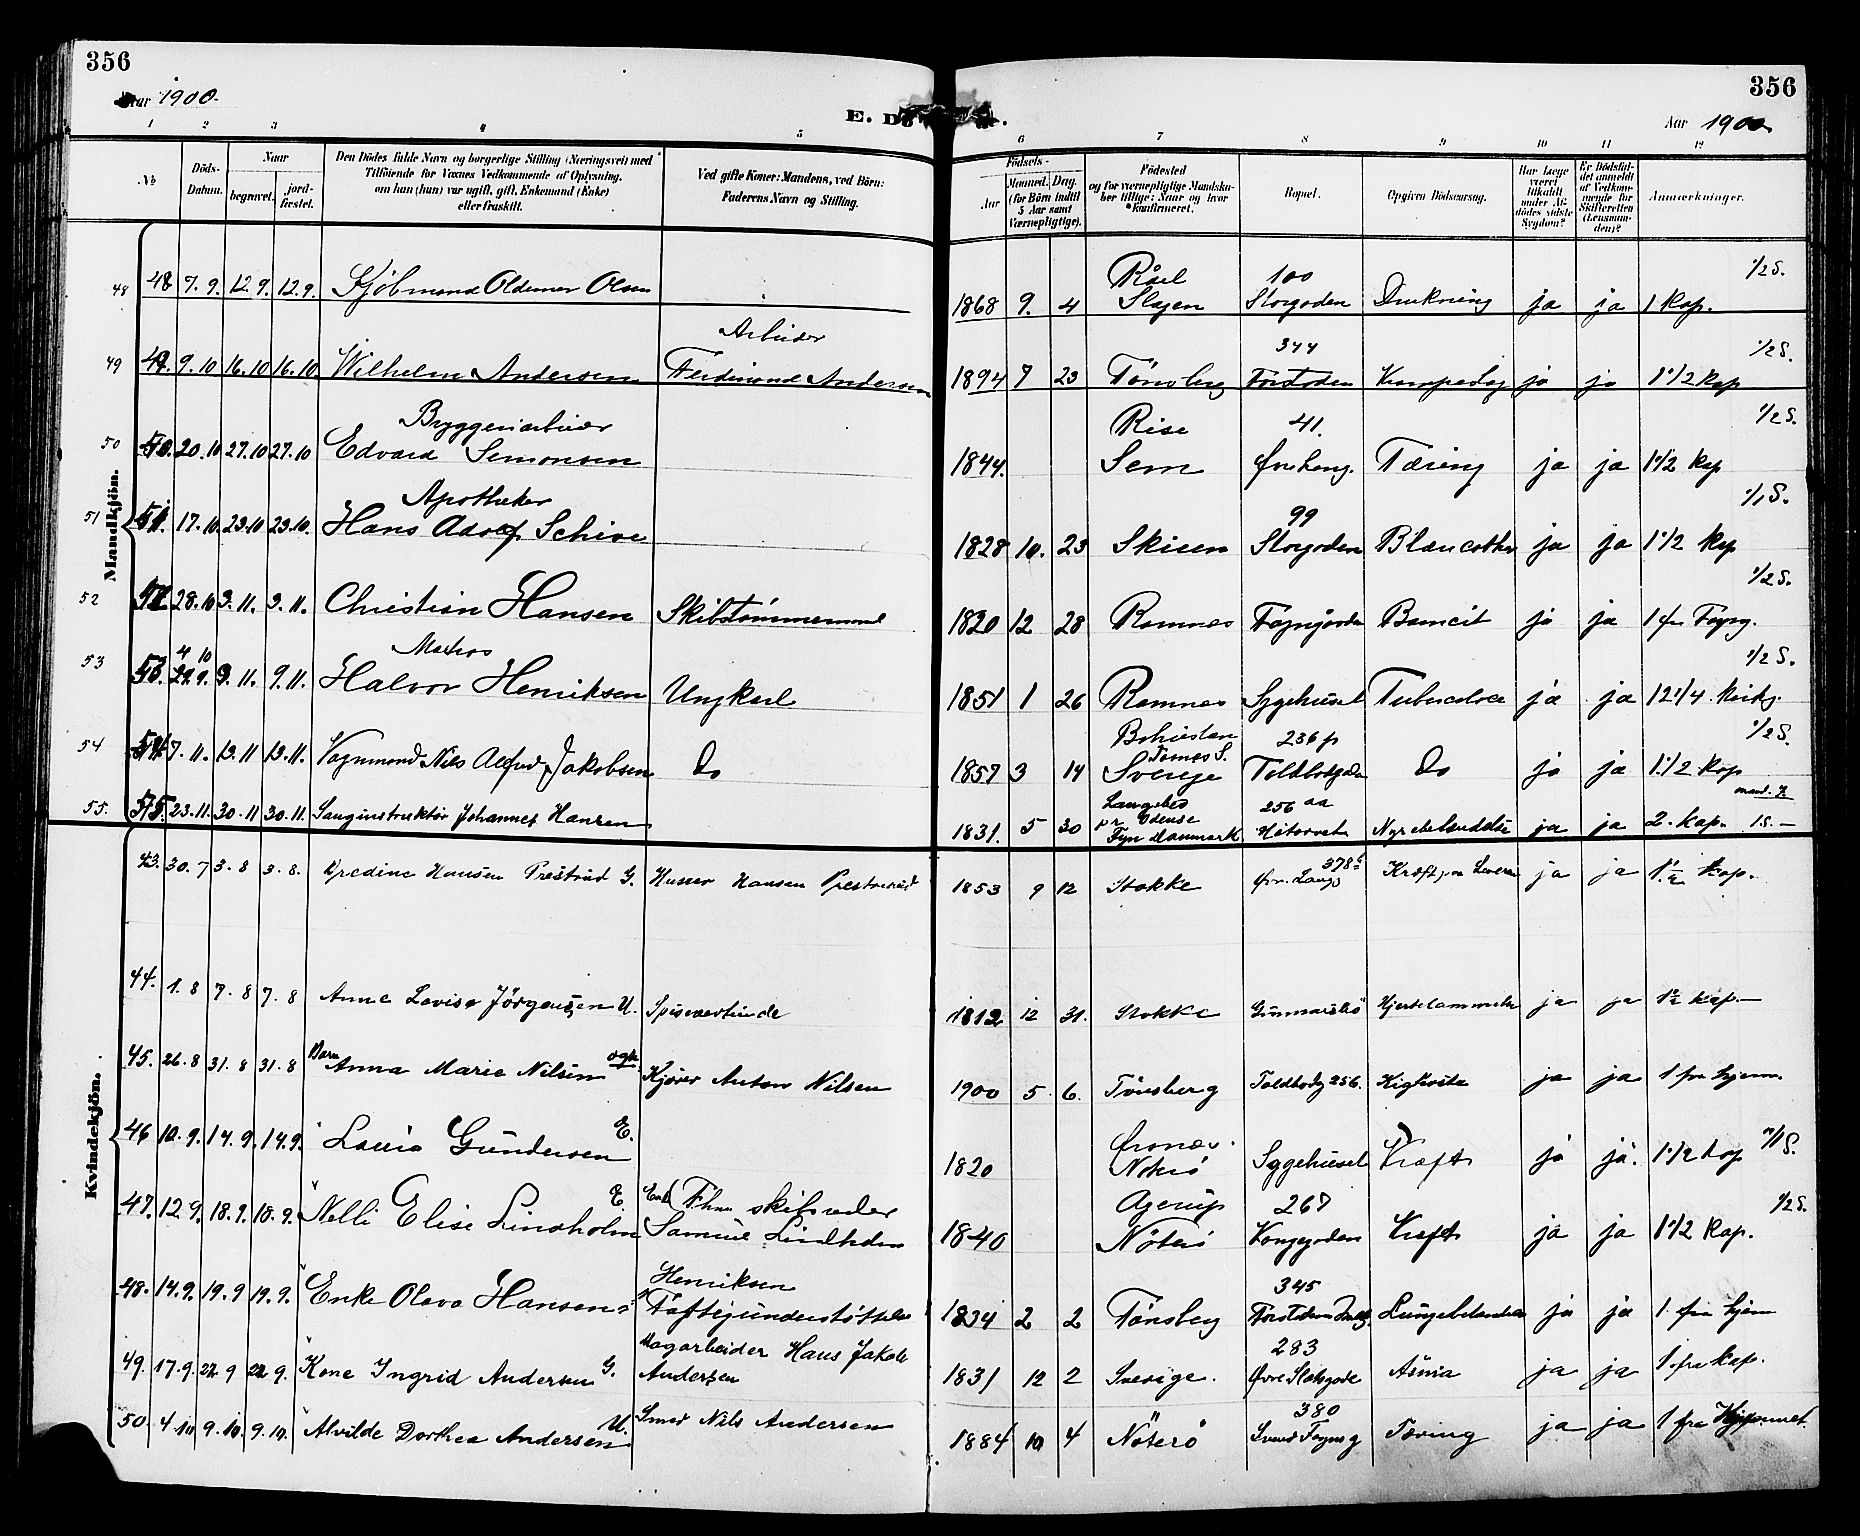 356
356
Aar 1900.
E. Dö
Aar 1900
1 2 3 4 5 6 7 8 9 10 11 12
No. Döds-Datum. Naar begravet. jord-fæstet.
Den Dödes fulde Navn og borgerlige Stilling (Næringsvei) med
Tilföiende for Voxnes Vedkommende af Oplysning,
om han (hun) var ugift, gift, Enkemand (Enke)
eller fraskilt.
Ved gifte Koner: Mandens, ved Börn:
Faderens Navn og Stilling.
Födsels-
Aar Maaned. Dag.
(for Börn indtil
5 Aar samt
Værnepligtige).
Födested
og for værnepligtige Mandska-
ber tillige: Naar og hvor
konfirmeret.
Bopæl.
Opgiven Dödsaarsag.
Har Læge
været
tilkaldt
under Af-
dödes sidste
Sygdom?
Er Dödsfal-
det anmeldt
af Vedkom-
mende for
Skifteretten
(Lensman-
den)?
Anmærkninger.
Mandkjön.
48 48 7. 9. 12. 9. 12. 9. Kjöbmand Oldemar Olsen 1868 9. 4 Råel Slagen 100 Storgaden Drukning ja ja 1 Kap. 1/2 S.
49 49. 9. 10 16. 10 16. 10 Wilhelm Andersen Arbeider Ferdinand Andersen 1894 7 23 Tönsberg 344 ja ja 1 1/2 Kap 1/2 S.
50 50. 20. 10 27. 10 27. 10 Bryggeriarbeider Edvard Semonsen 1844. Rise Sem 41. Øvre Lang. Tæring ja ja 1 1/2 Kap 1/2 S.
51 51. 17. 10. 23. 10 23. 10. Apotheker Hans Adolf Schive 1828 10. 23 Skien 99 Storgaden ja ja 1 1/2 Kap 1/1 S.
52 52 28. 10 3. 11. 3. 11. Christian Hansen Skibstømmermand 1820 12 28 Ramnes ja ja 1 fra 1/2 S.
53 53. 4 10 29. 9. 9. 11. 9. 11. Matros Halvor Henriksen Ungkarl 1851 1 26 Ramnes Sygehuset ja ja 1 1/2 S.
54 54. 7. 11. 13. 11 13. 11. Vognmand Nils Alfred Jakobsen Do 1857 3 14 Sverige 236 p Do ja ja 1 1/2 Kap 1/2 S.
55. 55. 23. 11. 30. 11 30. 11. Sanginstruktör Johannes Hansen 1831. 5 30 Odense Fyn Danmark 256 aa ja ja 2. Kap. 1 S. -
Kvindekjön.
43. 30. 7 3. 8 3. 8. Hansen G. Hansen 1853 9 12 Stokke Øvr. Lang. 378 ja ja 1 1/2 Kap.
44. 1. 8 7. 8 7. 8 Anne Lovise Jörgensen U. Spiseværtinde 1812 12 31. Stokke ja ja 1 1/2 Kap. —
45. 26. 8 31. 8 31. 8 Barn Anna Marie Nilsen Kjører Anton Nilsen 1900 5. 6. Tönsberg Toldbodg 256. Kighoste ja ja 1 fra hjem.
46 10. 9. 14. 9. 14. 9. Gundersen E. 1820 Nøterö Sygehuset Kræft ja ja. 1 1/2 Kap 1/1 S.
47. 12. 9. 18. 9. 18. 9. Nelli Elise Lindholm E. Fhv. skibsreder 1840 Agerup Nöterö 267 Kongegaden Kræft ja ja 1 1/2 Kap. 1/2 S.
48. 14. 9. 19. 9 19. 9. Enke Olava Hansen Henriksen Fattigunderstøttelse 1834 2 2 Tönsberg 345 Lungebetændelse ja ja 1. fra hjem
49. 17. 9. 22. 9 22. 9. Kone Ingrid Andersen G. Hans Jakob Andersen 1831 12 2 Sverige. 283 Øvre Slotsgade Asma ja ja 1 fra Kap.
50. 4. 10 9. 10. 9. 10. Alvilde Dorthea Andersen U. Smed Nils Andersen 1884 10 4 Nöterö 380 Svend Foyns g Tæring ja ja 1 fra Hjemmet.